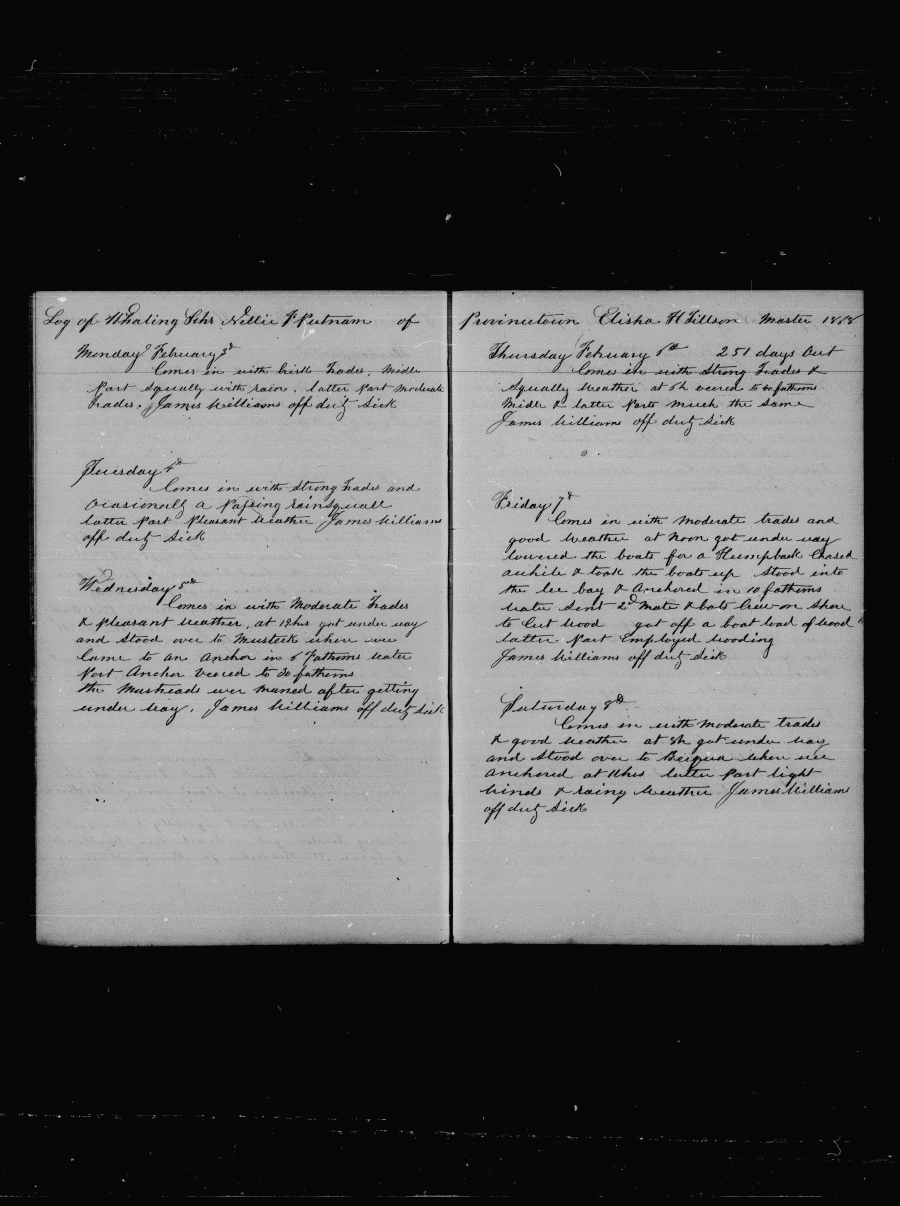 Log of Whaling Schr Nellie F Putnam of
Monday February 3d
Comes in with brisk Trades, Midle
Part squally with rain. latter Part moderate
trades. James Williams off duty Sick
Tuesday 4th
Comes in with Strong Trades and
Ocasionally a Passing rainsquall
latter Part Pleasant Weather James Williams
off duty Sick
Wednesday 5th
Comes in with Moderate Trades
& Pleasant Weather, at 12hrs got under way
and Stood over to Musteck where we
Came to an anchor in 6 Fathoms Water
Port Anchor veered to 30 fathoms
the Mastheads wer maned after getting
under way. James Williams off duty Sick
Provincetown Elisha H Tillson Master
Thursday February 6th 251 days Out
Comes in with Strong Trades &
Squally Weather at 6h veered to 40 fathoms
Midle & latter Parts much the same
James Williams off duty Sick
Friday 7th
Comes in with moderate trades and
good Weather at Noon got under way
lowered the boats for a Humpback Chased
awhile & took the boats up Stood into
the lee bay & Anchored in 10 fathoms
Water Sent 2d Mate & bots Crew on Shore
to Cut Wood got off a boat load of Wood
latter Part Employed Wooding
James Williams off duty Sick
Saturday 8th
Comes in with moderate trades
& good Weather at 8h got under way
and Stood over to Bequa where we
anchored at 11hrs latter Part light
Winds & rainy Weather James William
off duty Sick